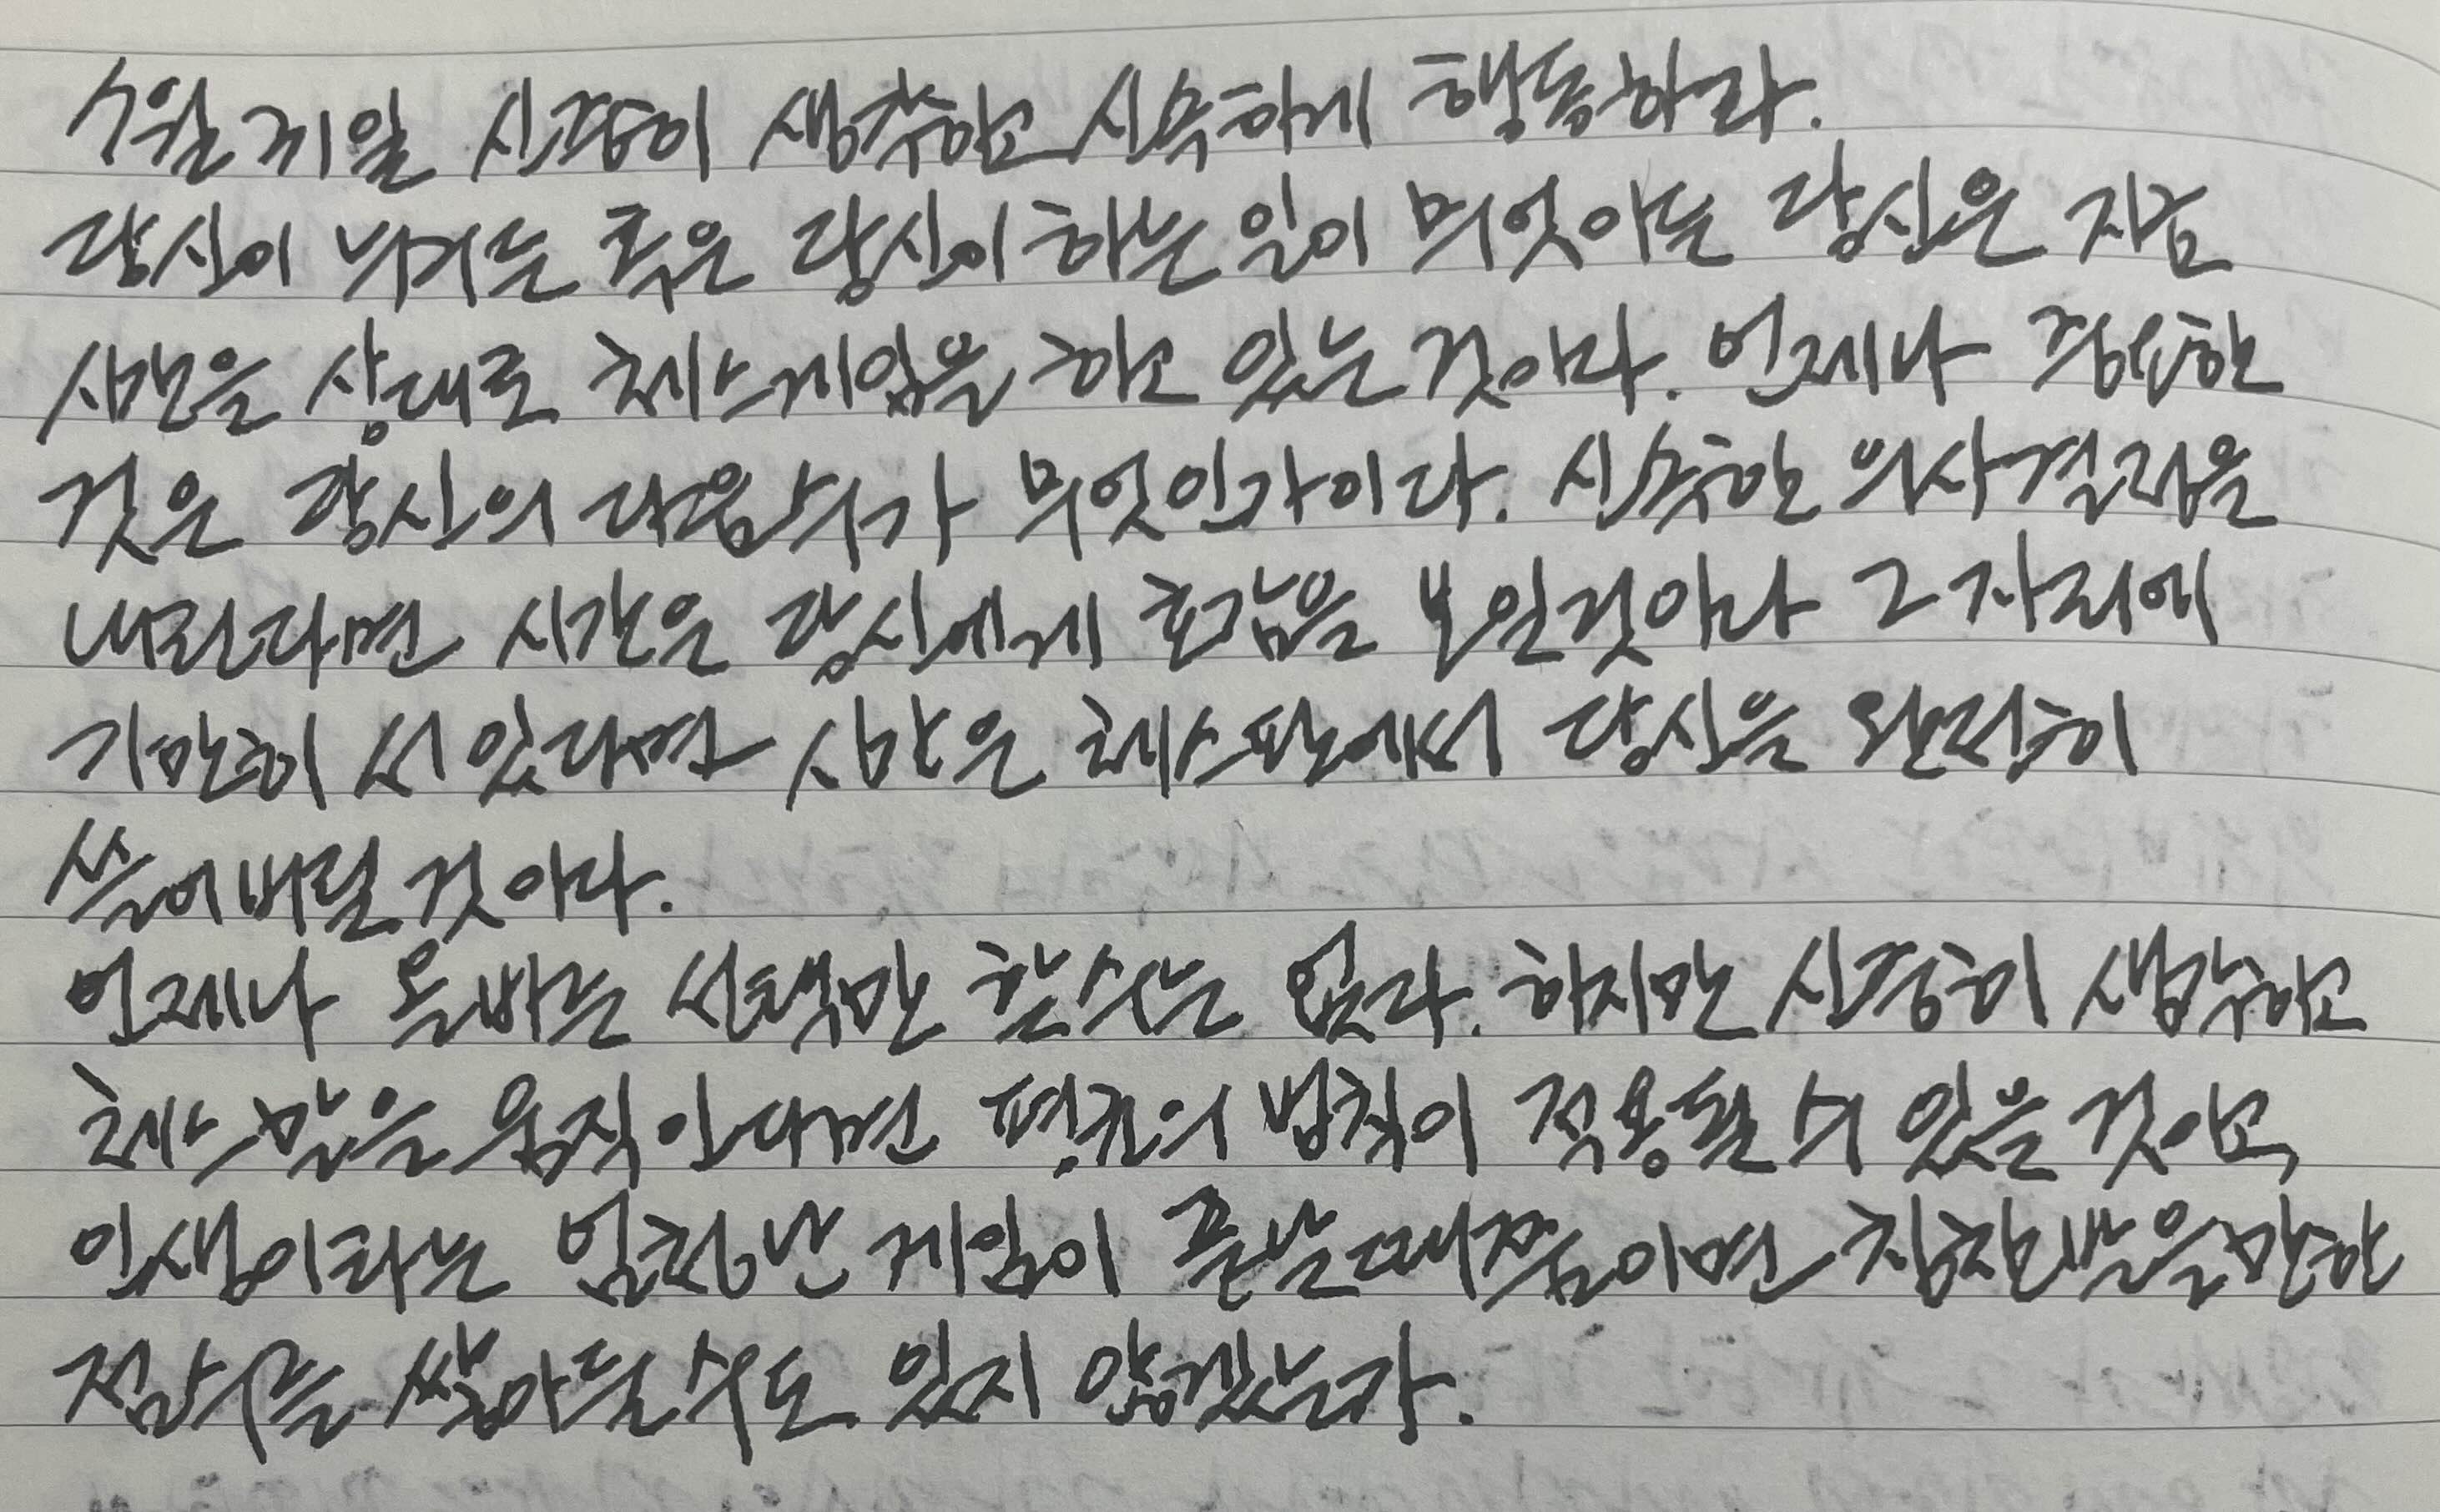 4월 7일 신중히 생각하고 신속하게 행동하라.
당신이 누구든 혹은 당신이 하는 일이 무엇이든 당신은 지금
시간을 상대로 체스게임을 하고 있는 것이다. 언제나 중요한
것은 당신의 다음 수가 무엇인가이다. 신속한 의사결정을
내린다면 시간은 당신에게 호감을 보일것이나 그 자리에
가만히 서 있다면 시간은 체스판에서 당신을 완전히
쓸어버릴 것이다.
언제나 올바른 선택만 할 수는 없다. 하지만 신중히 생각하고
체스 말을 움직인다면 평균의 법칙이 적용될 수 있을 것이고,
인생이라는 엄청난 게임이 끝날 때쯤이면 칭찬받을만한
점수를 쌓아둘 수도 있지 않겠는가.